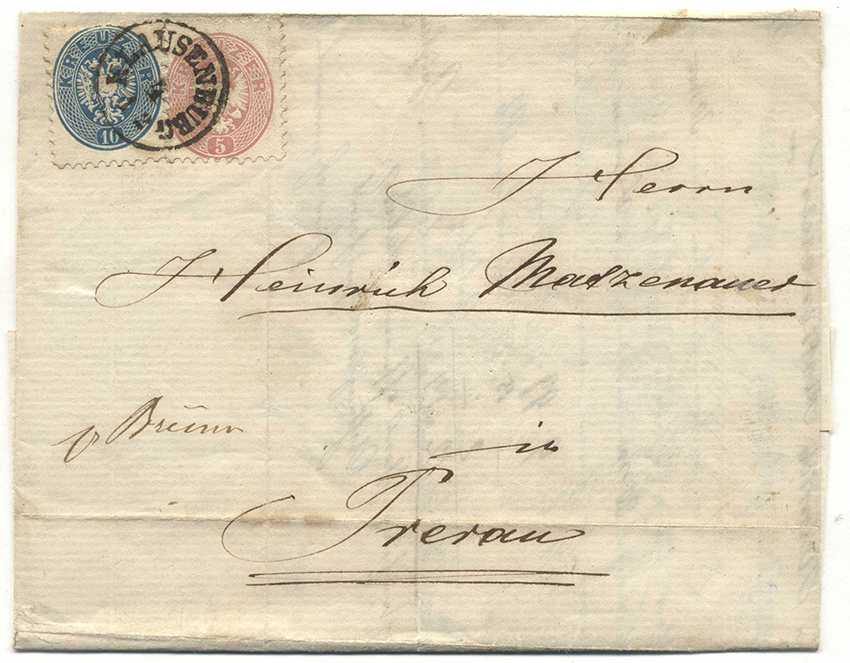 KREUZER
10
KREUZER
5
KLAUSENBURG
Herrn
Heinrich Matzenauer
p Brünn
in
Prerau